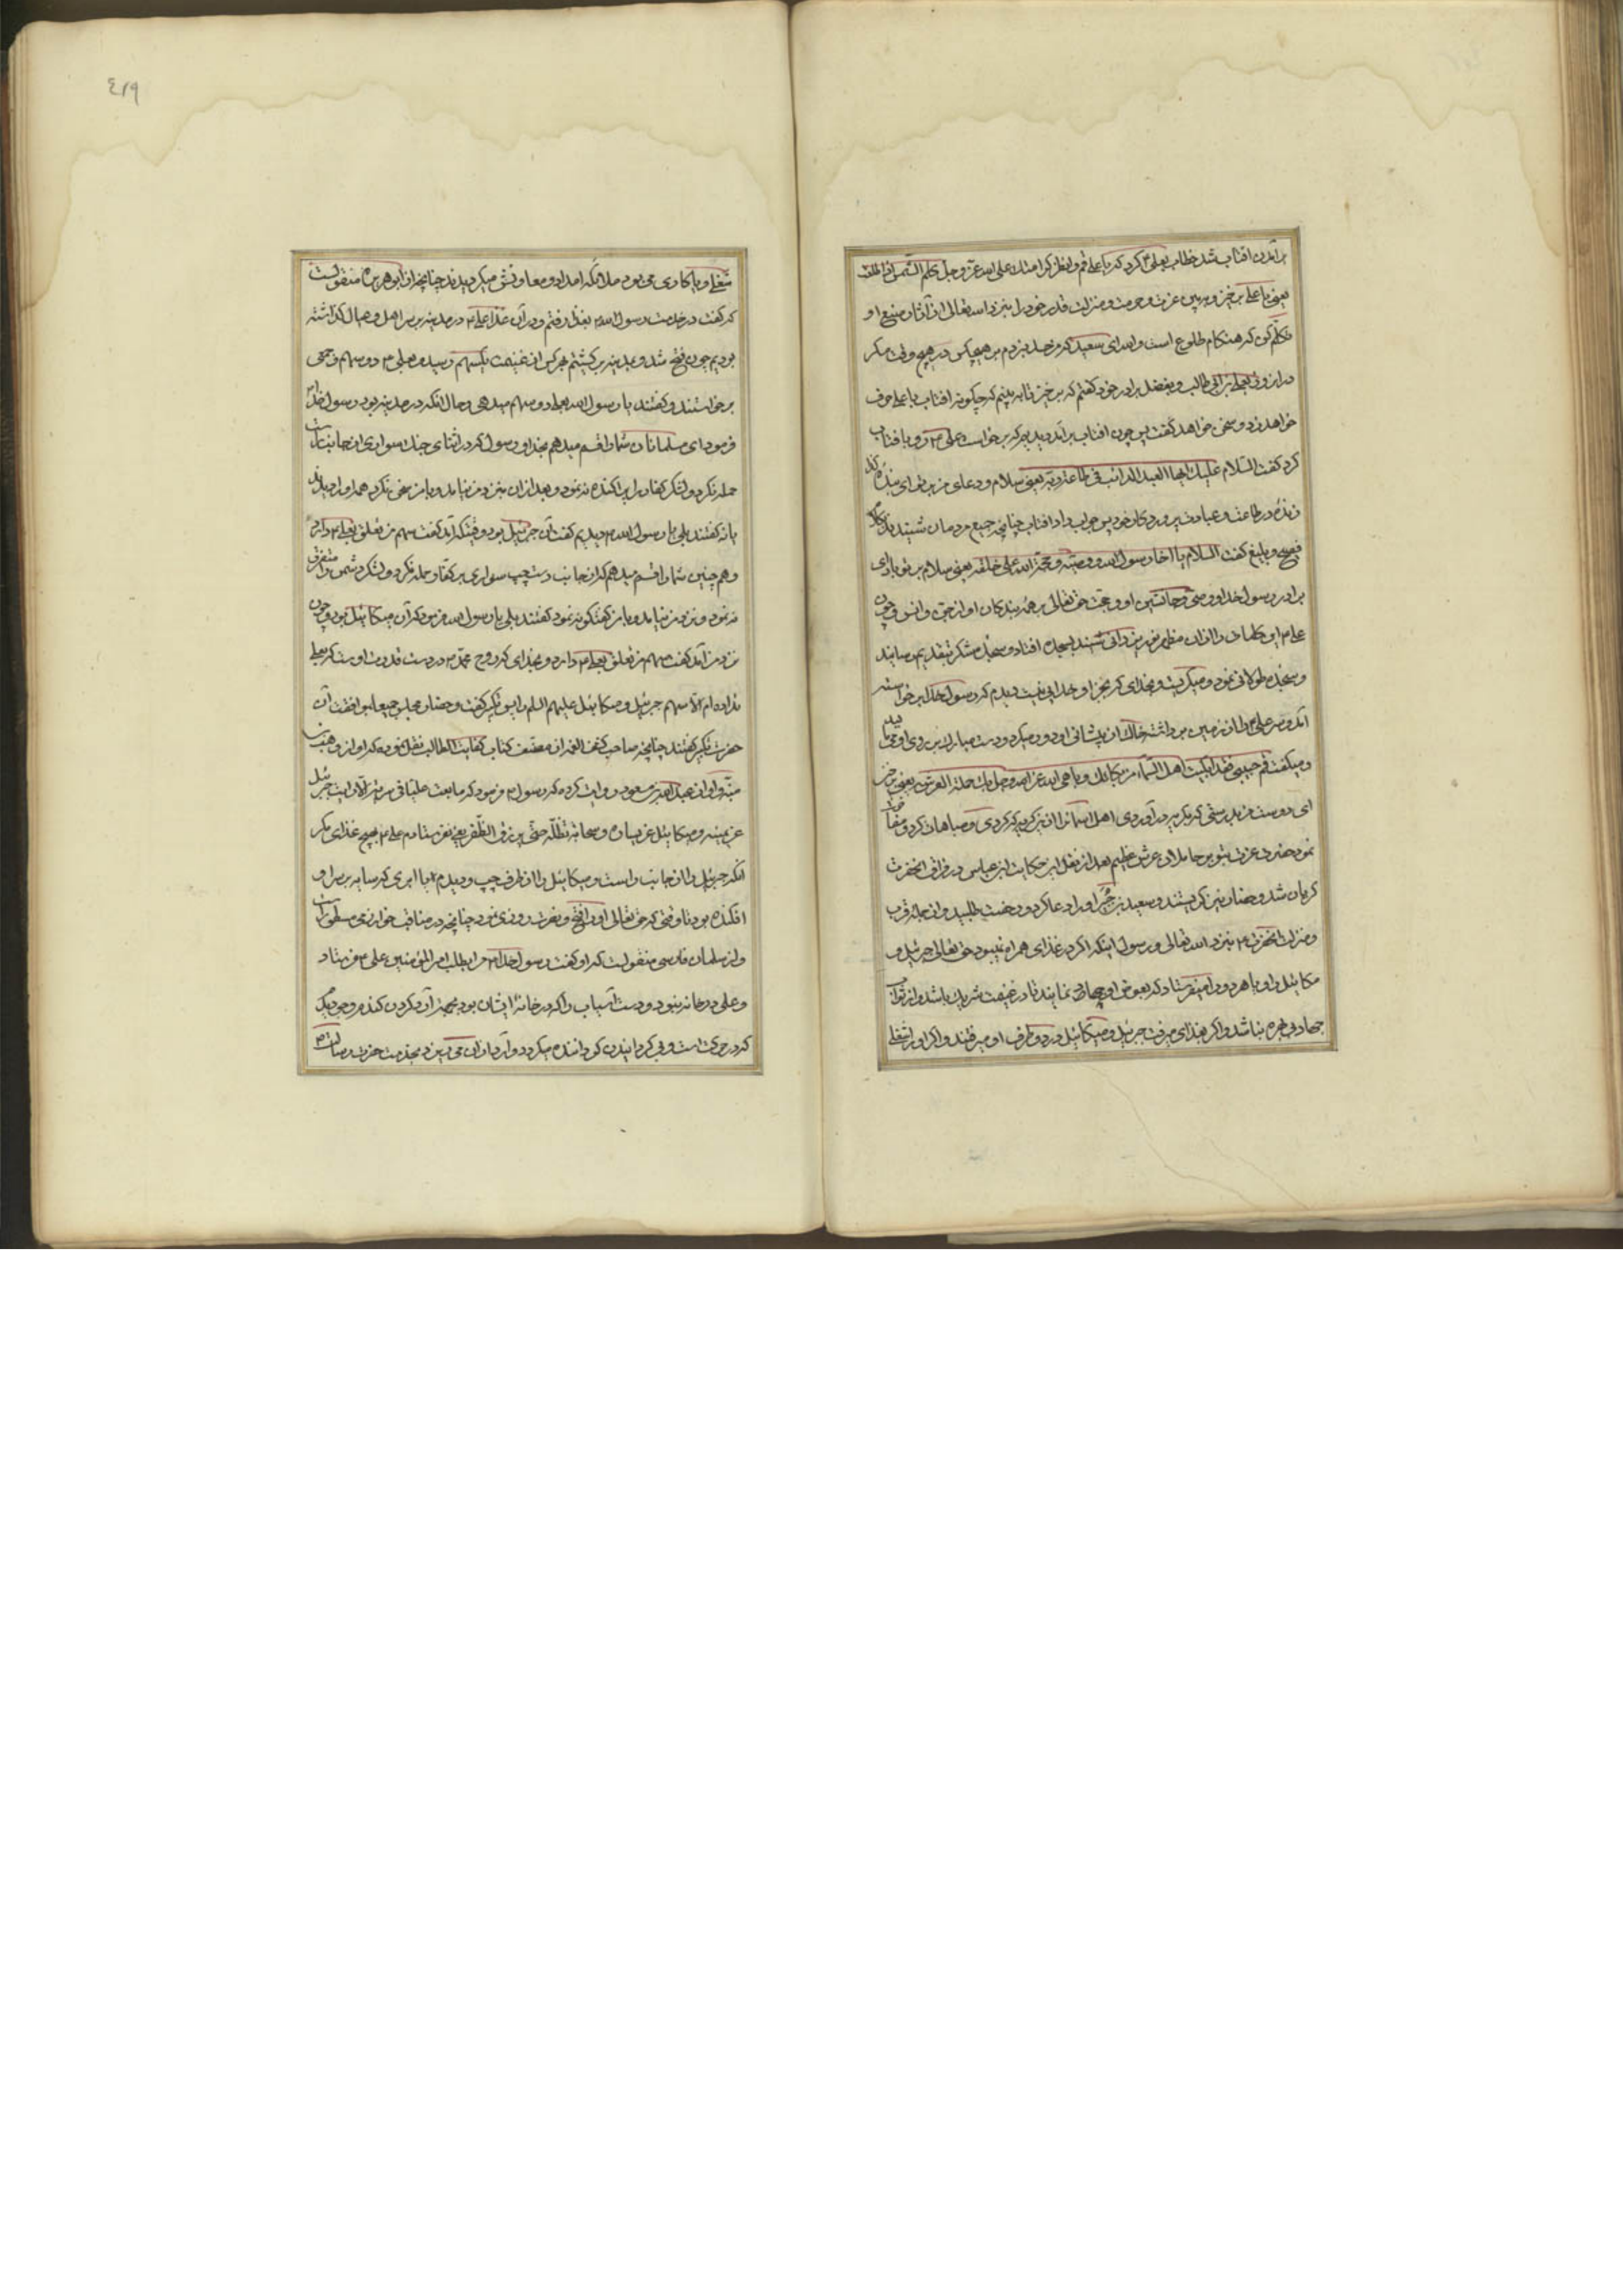 برآمدن افتاب شد خطاب بعلی م کرد که یا علی قم وانظر کرامتك علی الله عز و جل کلم الشمس اذا طلعت
یعنی یا علی برخیز و ببین عزت و حرمت و منزلت و قدر خود را بنزد الله تعالی از آثار صنیع او
تکلم کن که هنکام طلوع است والله ای سعید که من حسد نبردم بر هیچکس در هیچ وقت مکر
دران روز بعلی بن ابی طالب و بفضل برادر خود کفتم که برخیز تا به بینم که چکونه افتاب با علی حرف
خواهد زد و سخن خواهد کفت پس چون افتاب برآمد دیدیم که برخواست علی م و رو بافتاب
کرد کفت السلام علیك ایها العبد الدائب فی طاعة ربه یعنی سلام و دعای من بر تو ای بنده
در طاعت و عبادت پروردکار خود پس جواب داد افتاب چنانچه جمیع مردمان شنیدند
فصیح و بلیغ کفت السلام یا اخا رسول الله و وصیه و حجة الله علی خلقه یعنی سلام بر تو باد ای
برادر رسول خدا و وصی و جانشین او و حجت حق تعالی بر همه بندکان او از جن و انس و چون
علی م این کلمات را ازان مظهر نور یزدانی شنید بسجده افتاد و سجده شکر بتقدیم رسانید
و سجده طولانی نمود و میکریست و بخدای که بجز او خدایی نیست دیدم که رسول خدا برخواسته
آمد و سر علی م را از زمین برداشت خاك از پیشانی او دور میکرد و دست مبارك بر روی او می
و میکفت قم حبیبی فقد ابکیت اهل السماء من بکائك و باهی الله عز و جل بك حملة العرش یعنی برخیز
ای دوست من بدرستی که بکریه درآوردی اهل اسمانرا از این کریه که کردی و مباهات کرد و
نمود حضرت عزت بتو بر حاملان عرش عظیم بعد از نقل این حکایت ابن عباس در فراق انحضرت
کریان شد و حضار نیز کریستند و سعید بن جبیر او را دعا کرد و رخصت طلبید و از جمله قرب
و منزلت انحضرت م بنزد الله تعالی و رسول اینکه اکر در غذای همراه نمیبود حق تعالی جبرئیل و
مکائیل را و یا هر دو را میفرستاد که بعوض او جهاد نمایند تا در غنیمت شریك باشد و از ثواب
جهاد بی بهره نباشد و اکر بغذای میرفت جبرئیل و میکائیل در دو طرف او میرفتند و اکر او را شغلی
شغلی و یا کاری می بود ملائکه امداد و معاونتش میکردیدند چنانچه از ابو هریره منقولست
که کفت در خدمت رسول الله م بغذا رفتم و دران غذا علی م در مدینه بر سر اهل و عیال کذاشته
بودیم چون فتح شد و بمدینه برکشتیم هر کس از غنیمت یکسهم رسید و بعلی م دو سهم و جمعی
برخواستند و کفتند یا رسول الله بعلی دو سهم میدهی و حال انکه در مدینه بود رسول خدا م
فرمود ای مسلمانان شما را قسم میدهم بخدا و رسول که در اثنای جنك سواری از جانب راست
حمله نکرد و لشکر کفار را پراکنده نه نمود و بعد ازان بنزد من نیامد و با من سخن نکرد همه او را دیدید
یا نه کفتند بلی یا رسول الله م دیدیم کفت آن جبرئیل بود وقتیکه آمد کفت سهم من تعلق بعلی م دارد
و همچنین شما را قسم میدهم که از جانب دست چپ سواری بر کفار حمله نکرد و لشکر دشمن را متفرق
نه نمود و نزد من نیامد و با من کفتکو نه نمود کفتند بلی یا رسول الله فرمود که آن میکائیل بود و چون
نزد من آمد کفت سهم من تعلق بعلی م دارد و بخدای که روح محمد م در دست قدرت اوست که بعلی
نداده ام الا سهم جبرئیل و میکائیل علیهم السلم را پس تکبیر کفت و حضار مجلس جمیعا بموافقت آن
حضرت تکبیر کفتند چنانچه صاحب کشف الغمه از مصنف کتاب کفایت الطالب نقل نموده که او از وهب بن
منبه و او از عبد الله بن مسعود روایت کرده که رسول م فرمود که ما بعث علیا فی سریة الا رایت جبرئیل
عن یمینه و میکائیل عن یساره و سحابه تظله حتی یرزق الظفر یعنی نفرستادم علی م بهیچ غذای مکر
انکه جبرئیل را از جانب راست و میکائیل را از طرف چپ او دیدم م با ابری که سایه بر سر او
افکنده بود تا وقتی که حق تعالی او را فتح و نصرت روزی نمود چنانچه در مناقب خوارزمی مسطور است
و از سلمان فارسی منقولست که او کفت رسول خدا م مرا بطلب امیر المؤمنین علی م فرستاد
و علی در خانه نبود و دست آسیاب را که در خانه ایشان بود بجهة آرد کردن کندم و جو دیدم
که در حرکت است و بی کردانیدن کردانیده میکردد و آرد ازان می ریزد بخدمت حضرت رسالت م
٤١٩